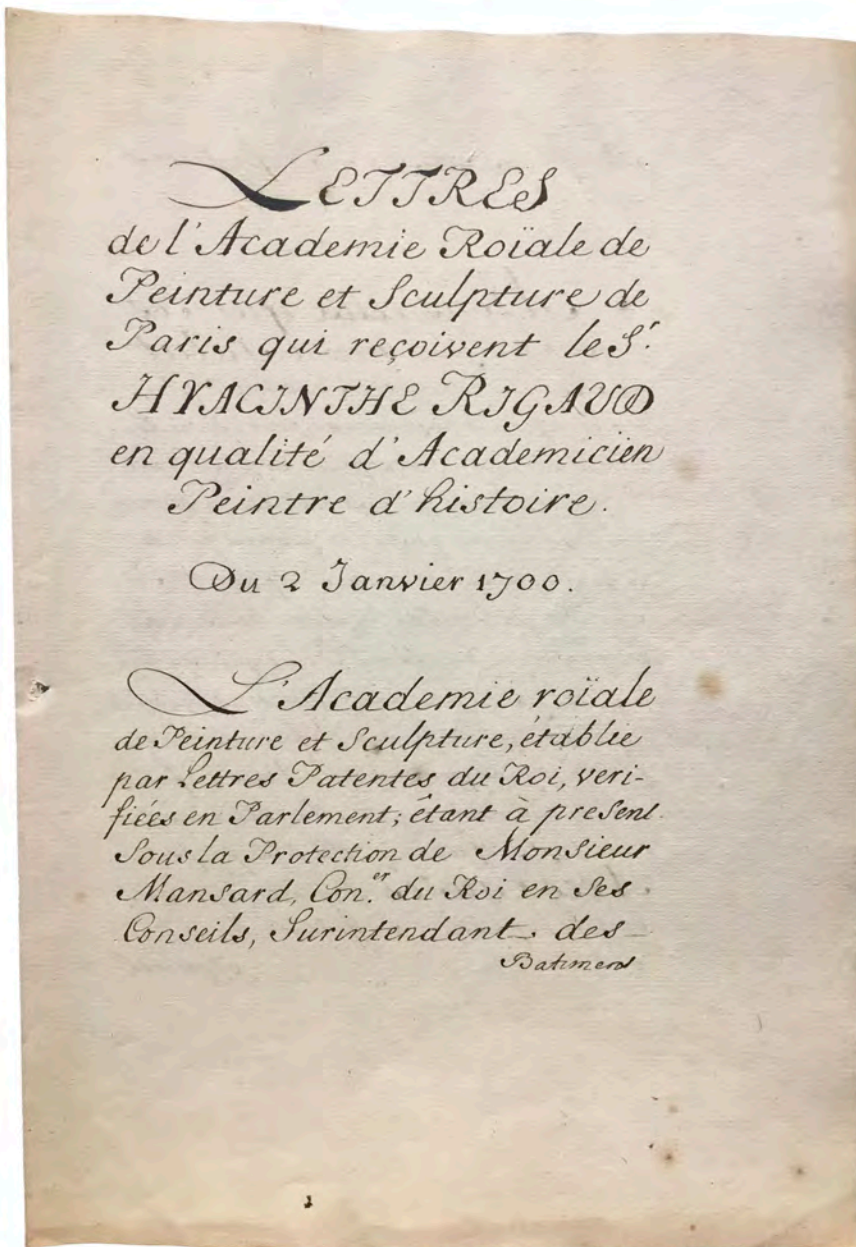 LETTRES
de l'Academie Roïale de
Peinture et Sculpture de
Paris qui reçoivent le Sr.
HYACINTHE RIGAUD
en qualité d'Academicien
Peintre d'histoire.
Du 2 Janvier 1700.
L'Academie roïale
de Peinture et Sculpture, établie
par Lettres Patentes du Roi, veri-
fiées en Parlement; étant à present
Sous la Protection de Monsieur
Mansard, Con.er du Roi en Ses
Conseils, Surintendant des
Batimens